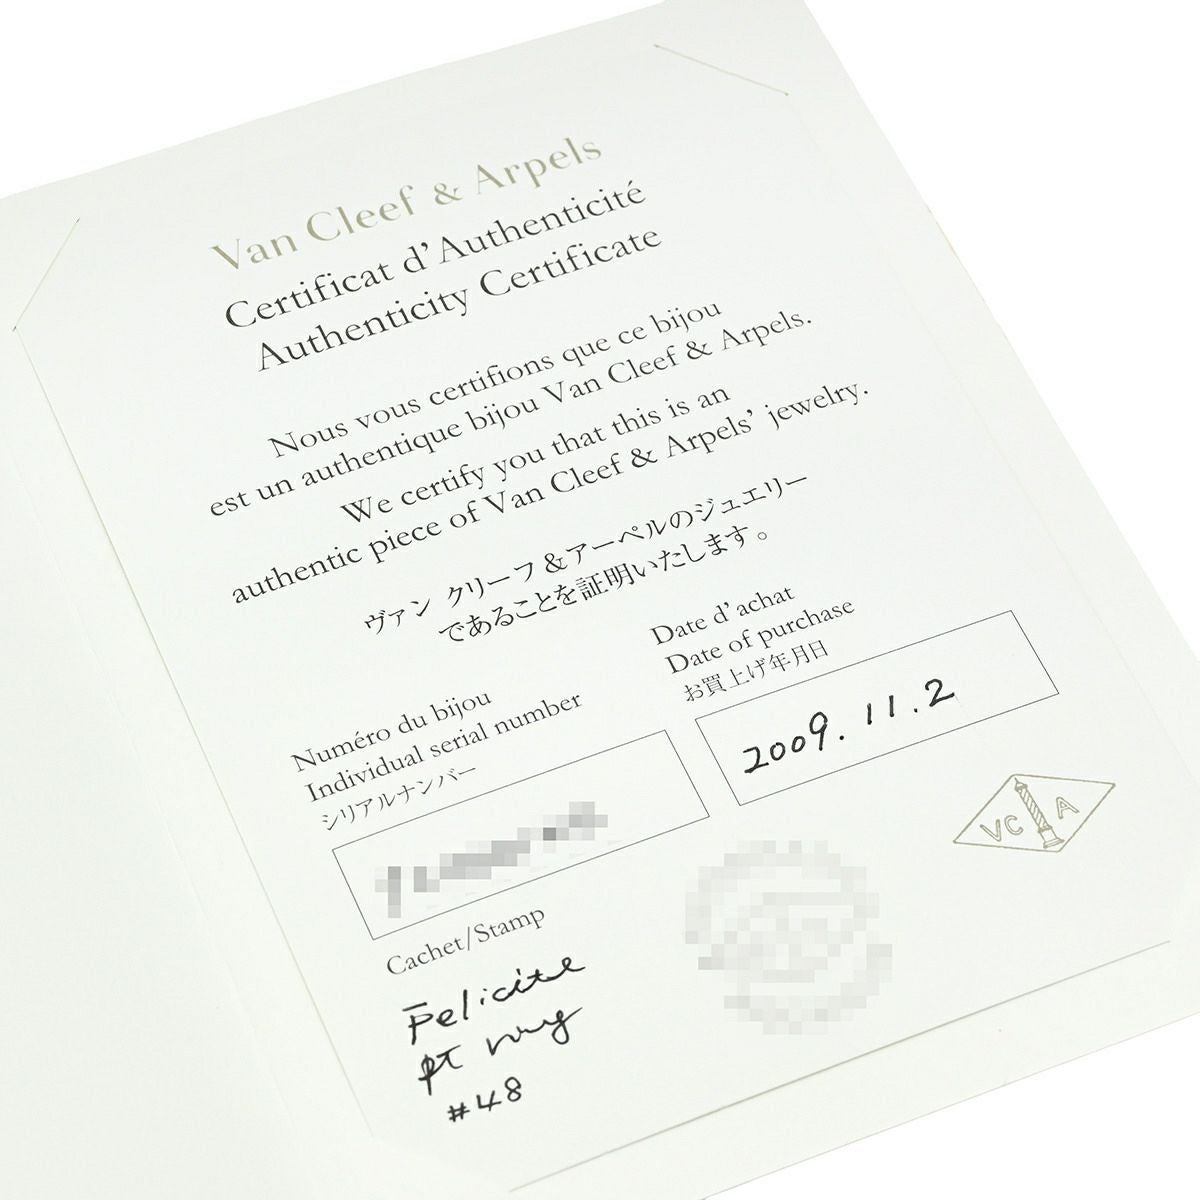 Van Cleef & Arpels
Certificat d'Authenticité
Authenticity Certificate
Nous vous certifions que ce bijou
est un authentique bijou Van Cleef & Arpels.
We certify you that this is an
authentic piece of Van Cleef & Arpels' jewelry.
ヴァン クリーフ&アーペルのジュエリー
であることを証明いたします。
Numéro du bijou
Individual serial number
シリアルナンバー
Date d'achat
Date of purchase
お買上げ年月日
2009.11.2
VC A
Cachet/Stamp
Felicite
PT ring
#48